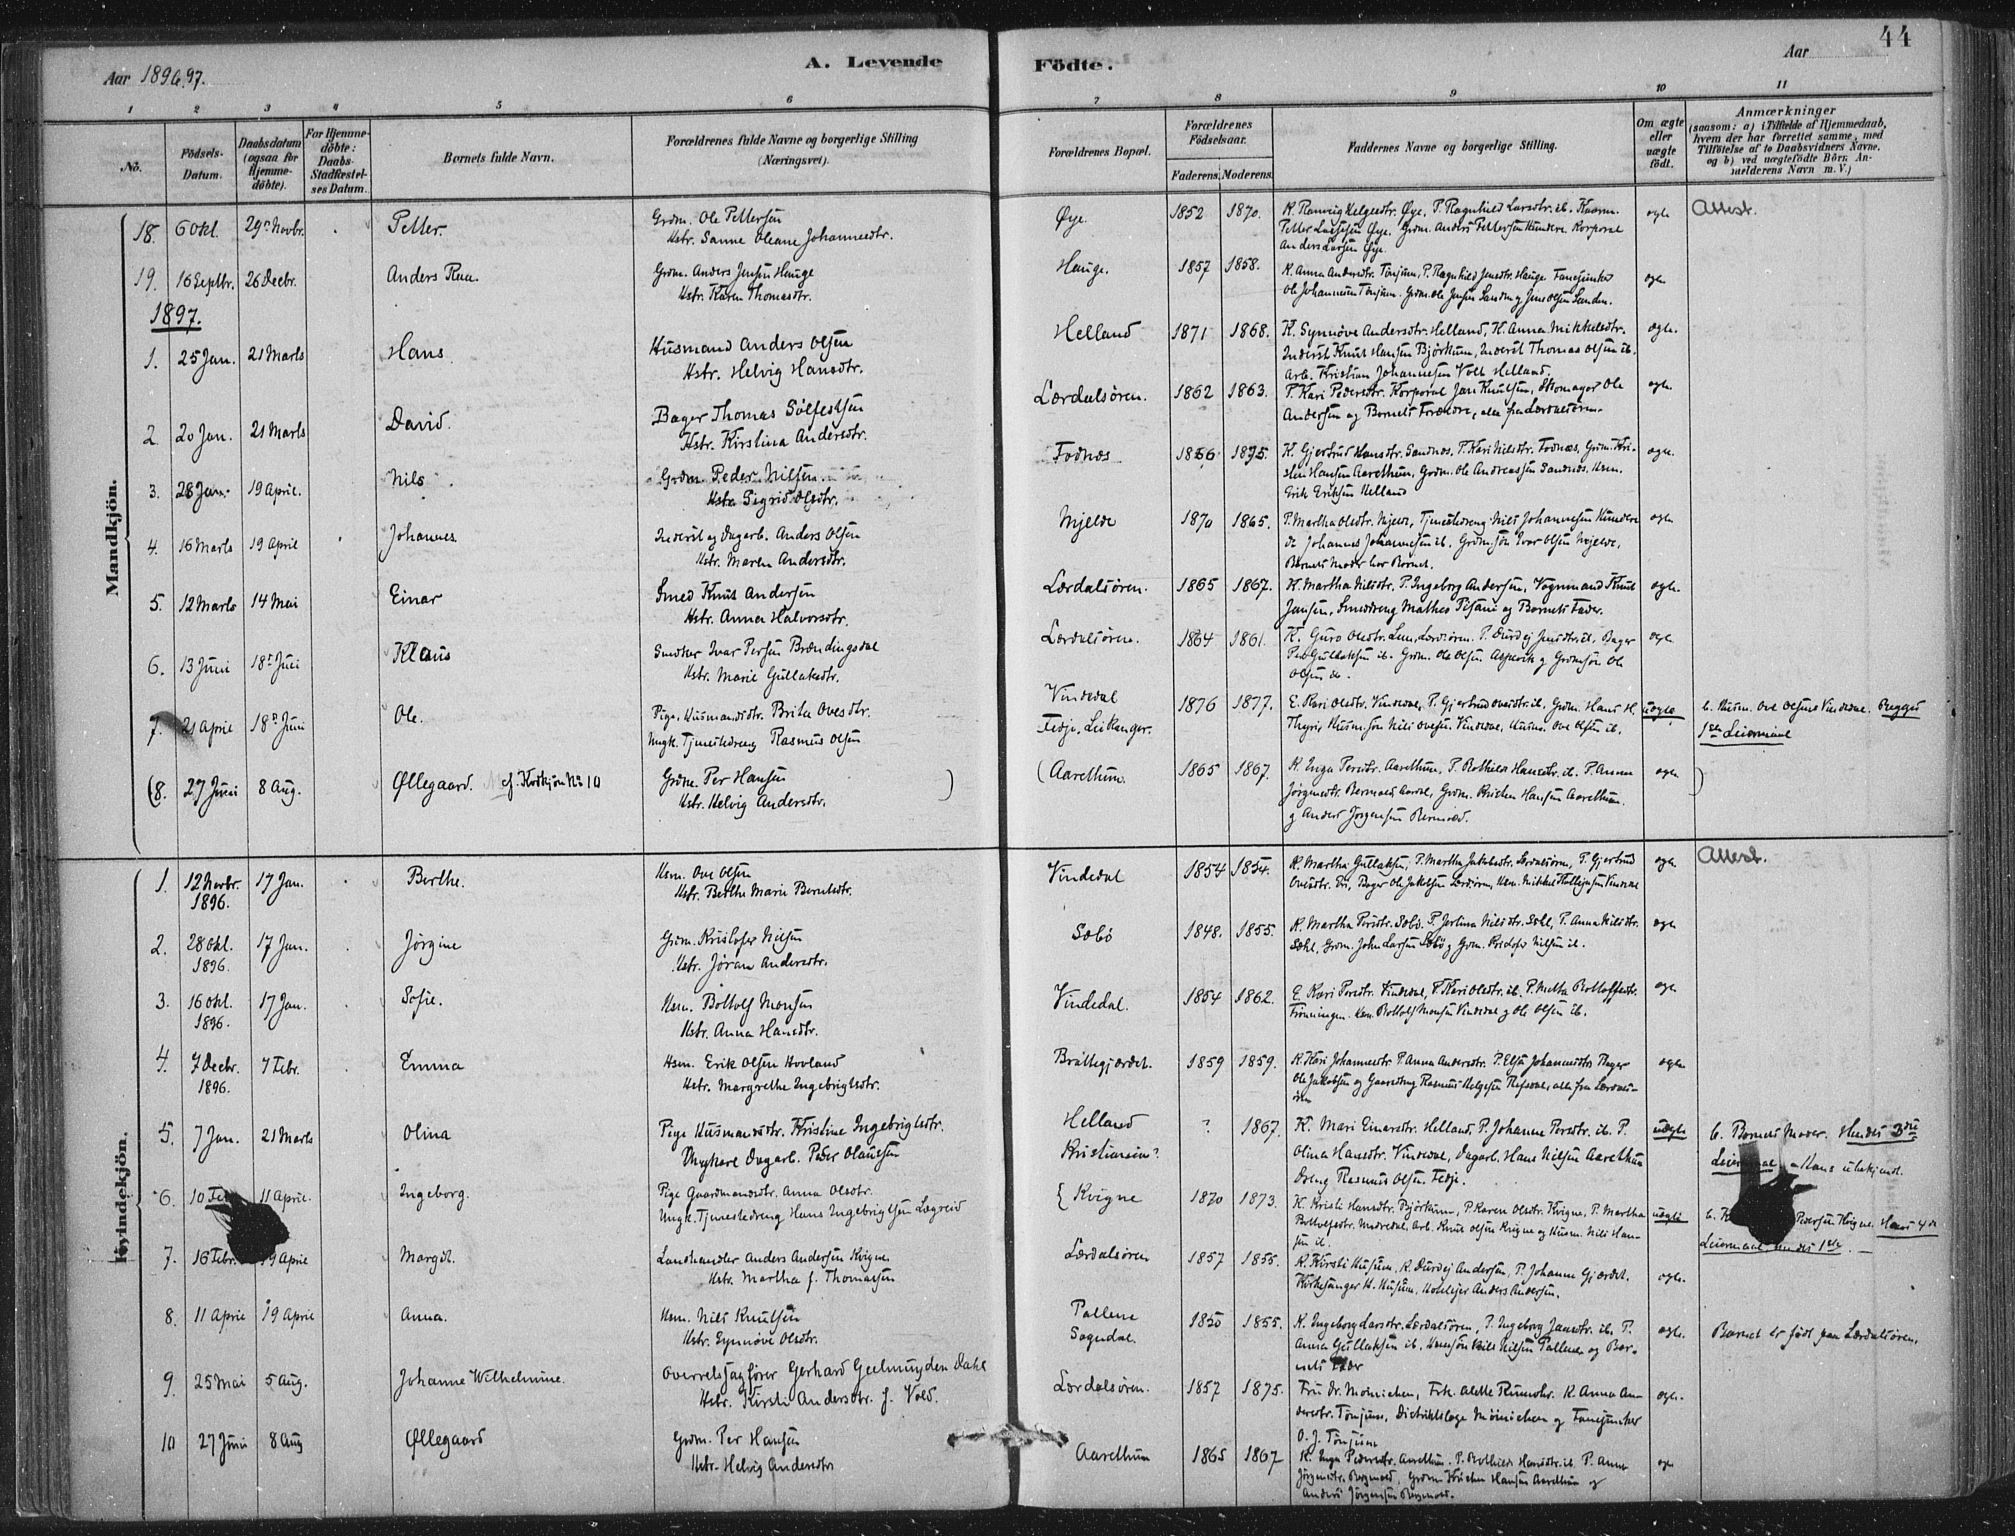 Aar 1896.97.
A. Levende
Födte.
Aar
44
1 2 3 4 5 6 7 8 9 10 11
No.
Födsels-Datum.
Daabsdatum (ogsaa for Hjemme-döbte).
For Hjemme-döbte: Daabs-Stadfæstel-ses Datum.
Barnets fulde Navn.
Forældrenes fulde Navne og borgerlige Stilling (Næringsvei).
Forældrenes Bopæl.
Forældrenes Födselsaar.
Faderens. Moderens.
Faddernes Navne og borgerlige Stilling.
Om ægte eller uægte födt.
Anmærkninger
(saasom: a) i Tilfælde af Hjemmedaab, hvem der har forrettet samme, med Tilföielse af to Daabsvidners Navne, og b) ved uægtefödte Börn, An-melderens Navn m. V.)
Mandkjön.
18. 6 Okt. 29de Novbr. Petter. Grdm. Ole Pettersen Øye. 1852 1870. K. Ranveig Helgesdtr. Øye, P. Ragnhild Larsdtr. ib. ægte Attest.
Hstr. Sanne Oleane Johannesdtr. Petter Larsen Øye. Grdm. Anders Pettersen Hundere. Korporal
Anders Larsen Øye
19. 16 Septbr. 26 Decbr. Anders Raa. Grdm. Anders Jensen Hauge Hauge. 1857 1858. K. Anna Andersdtr. Tönjum, P. Ragnhild Jensdtr. Hauge. Fanejunker ægte
Hstr. Karen Thomasdtr. Ole Johannesen Tönjum. Grdm. Ole Jensen Sanden og Jens Olsen Sanden.
1897.
1. 25 Jan. 21 Marts Hans. Husmand Anders Olsen Helland 1871 1868. K. Synnöve Andersdtr. Helland, K. Anna Mikkelsdtr. ægte.
Hstr. Helvig Hansdtr. Inderst Knut Hansen Bjørkum, Inderst Thomas Olsen ib.
Arb. Kristian Johannesen Helland.
2. 20 Jan. 21 Marts David. Bager Thomas Sölfestsen Lærdalsören. 1862 1863. P. Kari Pedersdtr. Korporal Jan Knutsen, Skomager Ole ægte
Hstr. Kirstina Andersdtr. Andersen og Barnets Forældre, alle fra Lærdalsören.
3. 28 Jan. 19 April. Nils. Grdm. Peder Nilsen. Fodnæs 1856 1875. K. Gjertrud Hansdtr. Sandnæs, P. Kari Nilsdtr. Fodnæs, Grdm. Kri- ægte.
Hstr. Sigrid Olsdtr. sten Hansen Aarethun, Grdm. Ole Andreassen Sandnæs, Hsm.
Erik Eriksen Helland
4. 16 Marts 19 April Johannes Inderst og Dagarb. Anders Olsen Mjelde 1870 1865. P. Martha Olsdtr. Mjelde, Tjenestedreng Nils Johannesen Hundere ægte
Hstr. Maren Andersdtr. Johannes Johannesen ib. Grdm.sön Ivar Olsen Mjelde,
Barnets Moder bar Barnet.
5. 12 Marts 14 Mai Einar Smed Knut Andersen Lærdalsören. 1865 1867. K. Martha Nilsdtr. P. Ingeborg Andersen, Vognmand Knut ægte.
Hstr. Anna Halvorsdtr. Jansen, Smeddreng Mathes Pisani og Barnets Fader.
6. 13 Juni 18 Juli Klaus Snedker Ivar Persen Brændingsdal Lærdalsören. 1864 1861. K. Guro Olsdtr. Lem, Lærdsören. P. Durdej Jensdtr. ib. Bager ægte
Hstr. Marie Gullaksdtr. Per Gullaksen ib. Grdm. Ole Olsen Aspervik og Grdmsön Ole
Olsen ds.
7. 21 April 18 Juni Ole. Pige, Husmandsdtr. Brita Ovesdtr. Vindedal 1876 1877. E. Kari Olsdtr. Vindedal, P. Gjertrud Ovesdtr. ib. Grdm. Hans H. uægte b. Husm. Ove Olsens Vindedal. Begges
Ungk. Tjenestedreng Rasmus Olsen Fedje, Leikanger. Thyri, Husm. sön Nils Ovesen Vindedal, Husm. Ove Olsen ib. 1ste Leiermaal
(8. 27 Juni 8 Aug. Øllegaard. cf. Kvdkjön No 10 Grdm. Per Hansen ) (Aarethun. 1865 1867. K. Inga Persdtr. Aarethun, P. Bothild Hansdtr. ib. P. Anna ægte )
Hstr. Helvig Andersdtr. Jörgensdtr. Bermaas Aardal, Grdm. Kristen Hansen Aarethun.
og Anders Jörgensen Bermaas.
Kvindekjön.
1. 12 Novbr. 1896. 17 Jan. Berthe. Hsm. Ove Olsen Vindedal 1854 1854. K. Martha Gullaksen, P. Martha Jakobsdtr. Lærdalsören, P. Gjertrud ægte Attest.
Hstr. Berthe Marie Berntsdtr. Ovesdtr. Vi, Bager Ole Jakobsen Lærdören, Hsm. Mikkel Hallgjersen Vindedal
2. 28 Okt. 1896. 17 Jan. Jørgine Grdm. Kristofer Nilsen Sæbö 1848. 1855. K. Martha Persdtr. Sæbö. P. Jorlina Nilsdtr. Sæhl, P. Anna Nilsdtr. ægte
Hstr. Jøran Andersdtr. Sæhl, Grdm. John Larsen Sæbö og Grdm. Kristofer Nilsen ib.
3. 16 Okt. 1896. 17 Jan. Sofie. Hsm. Bottolf Monsen Vindedal. 1854 1862. E. Kari Persdtr. Vindedal, P. Kari Olsdtr. ib. P. Metha Bottolfsdtr. ægte
Hstr. Anna Hansdtr. Frönningen. Hsm. Bottolf Monsen Vindedal og Ole Olsen ib.
4. 7 Decbr. 1896. 7 Febr. Emma Hsm. Erik Olsen Hovland Bråttegjærdet. 1859 1859. K. Kari Johannesdtr. P. Anna Andersdtr. P. Elsa Johannesdtr. Bager ægte
Hstr. Margrethe Ingebrigtsdtr. Ole Jakobsen og Gaardsdreng Rasmus Helgesen Refsdal, alle fra Lærdals-
ören
5. 7 Jan. 21 Marts Olina Pige Husmandsdtr. Kristine Ingebrigtsdtr. Helland ? 1867. K. Mari Einarsdtr. Helland, P. Johanne Persdtr. ib. P. uægte b. Barnets Moder. Hendes 3die
Ungkarl Dagarb. Peder Olausen Kristiansin? Olina Hansdtr. Vindedal, Dagarb. Hans Nilsen Aarethun Leiermaal - Hans ubekjendt.
Dreng Rasmus Olsen Fedje.
6. 10 11 April. Ingeborg. Pige Gaardmandsdtr. Anna Olsdtr. { Kvigne 1870 1873. K. Kristi Hansdtr. Bjørkum, P. Karen Olsdtr. Kvigne, P. Martha uægte b. Pedersen Kvigne. Hans 4de
Ungk. Tjenestedreng Hans Ingebrigtsen Lægreid Bottolfsdtr. Mæredal, Arb. Knut Olsen Kvigne og Husm. Nils Han- Leiermaal hendes 1ste.
sen ib.
7. 16 Febr. 19 April Margit. Landhandler Anders Andersen Kvigne Lærdalsören 1857 1855. K. Kirsti Husum, K. Durdej Andersen, P. Johanne Gjærdet. ægte.
Hstr. Martha f. Thomasen Kirkesanger H. Husum, Hotelejer Anders Andersen.
8. 11 April 19 April Anna. Hsm. Nils Knutsen Pallene Sogndal. 1850 1855. K. Ingeborg Larsdtr. Lærdalsören, P. Ingeborg Jansdtr. ib. P. ægte. Barnet er født paa Lærdalsören.
Hstr. Synnøve Olsdtr. Anna Gullaksen ib. Hsmsön Nils Nilsen Pallene og Bar-
nets Fader
9. 25 Mai 5 Aug. Johanne Wilhelmine. Overretssagfører Gerhard Geelmuyden Dahl Lærdalsören. 1857 1875. Fru Dr. Mönichen, Frk. Alette Rumohr. K. Anna An- ægte.
Hstr. Kirsti Andersdtr. f. Vold. dersdtr. Tönjum, Distriktslæge Mönichen og Fanejunker
O. J. Tönjum
10 27 Juni 8 Aug Øllegaard Grdm. Per Hansen Aarethun 1865 1867 K. Inga Pedersdtr. Aarethun. P. Bothild Hansdtr. ib. P. Anna ægte
Hstr. Helvig Andersdtr Jörgensdtr. Bergmaas, Grdm Kristen Hansen Aarethun og
Anders Jörgensen Bergmaas.